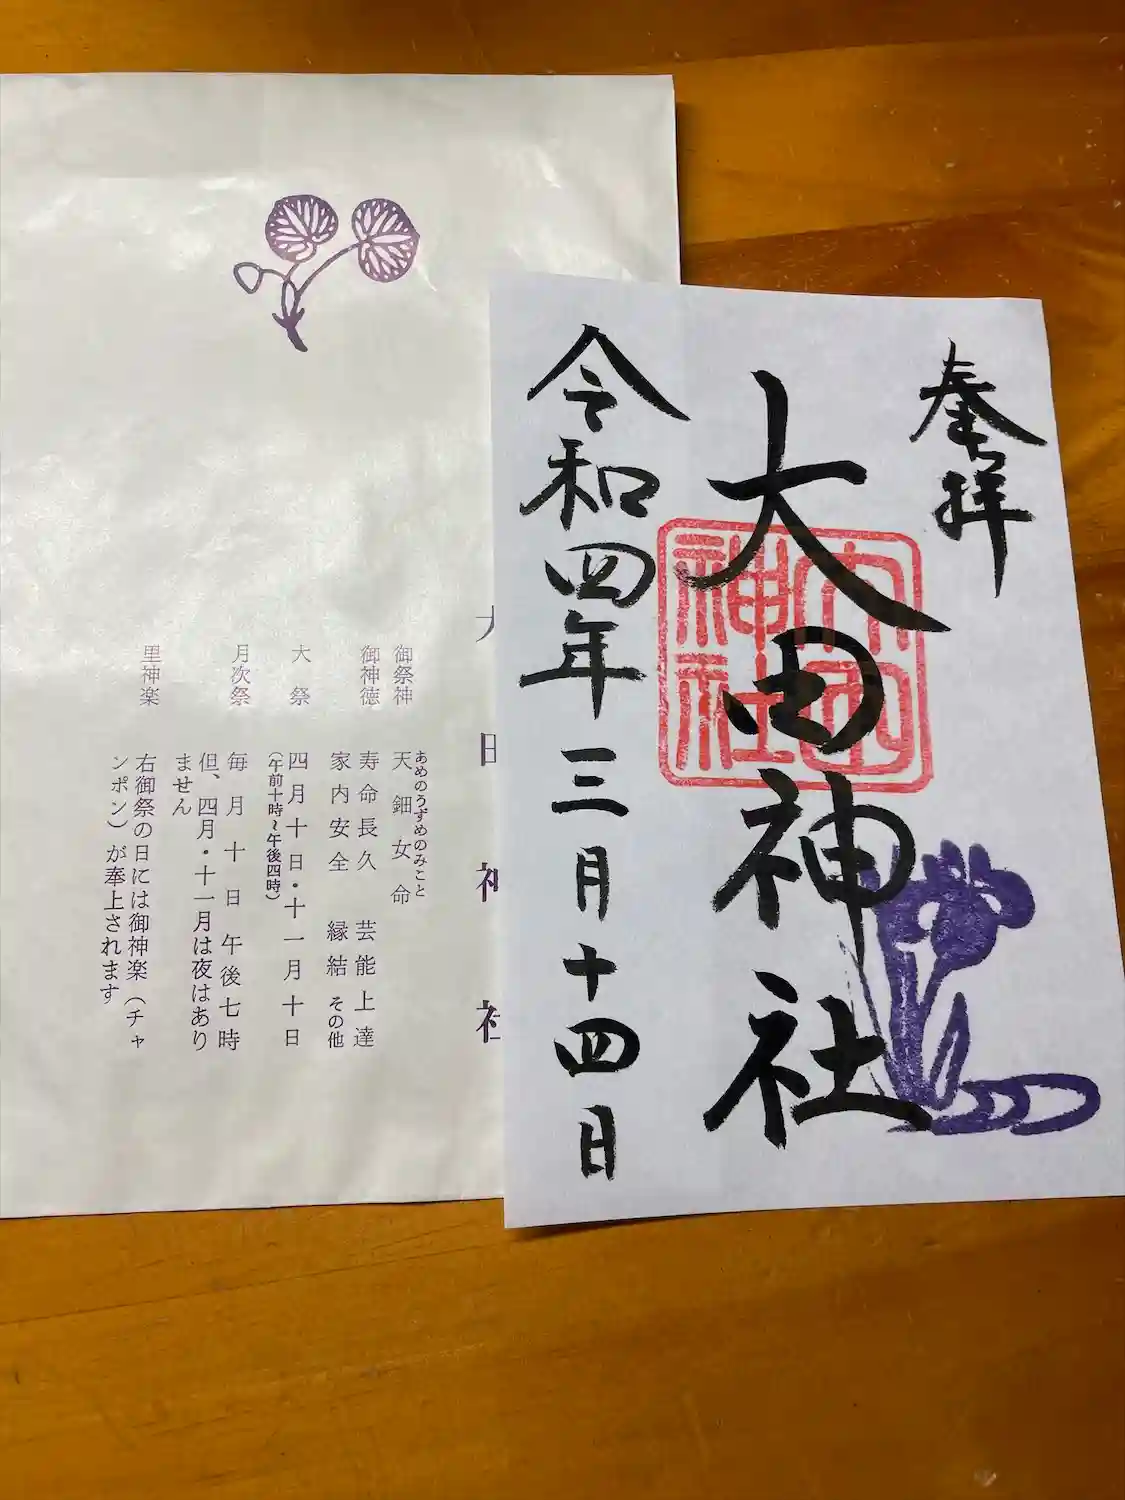 奉拝
大田神社
大田神社
令和四年三月十四日
大田神社
御祭神 天鈿女命
あめのうずめのみこと
御神徳 寿命長久 芸能上達
家内安全 縁結 その他
大祭 四月十日・十一月十日
(午前十時~午後四時)
月次祭 毎月十日午後七時
但、四月・十一月は夜はあり
ません
里神楽 右御祭の日には御神楽(チャ
ンポン)が奉上されます